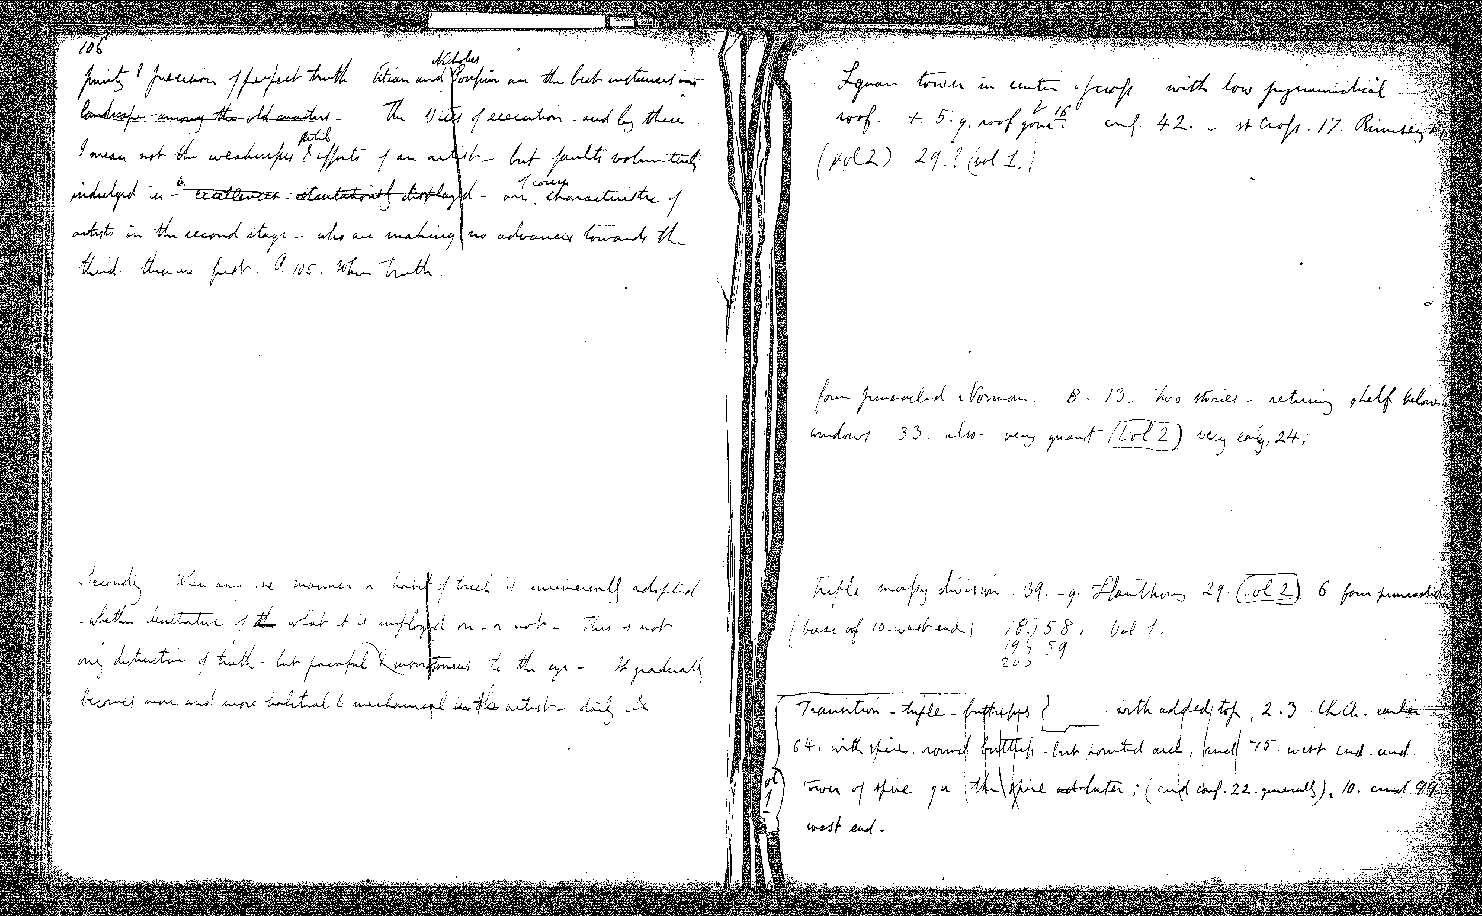 106
purity & precision of perfect truth Titian and Nicholas Poussin are the best instances in
landscape among the old masters - The Vices of execution - and by these
I mean not the weaknesses & futile efforts of an artist - but faults voluntarily
indulged in - displayed - are of course characteristic of
artists in the second stage - who are making no advances towards the
third. then as first. P. 105. When truth.
Secondly When any one manner or kind of touch is universally adopted
- whether imitative of the what it is employed on - or not - This is not
only destructive of truth - but painful & monotonous to the eye - It gradually
becomes more and more habitual & mechanical in the artist - daily
Square tower in center of cross with low pyramidical
roof. + 5. g. roof gone 16 conf. 42. - St Cross. 17. Rumsey
(vol 2) 29. (vol 1.)
four pinnacled Norman. 8 - 13. two stories - retiring shelf below
windows 33. also very quaint (Vol 2) very early, 24;
Triple massy division. 39. - g. Hawthorn 29. (vol 2) 6 four pinnacled
(base of 10. west end; 18. 58. Vol 1.
19 59
20
Transition - triple - buttresses with added top, 2.3 Ch.Ch.
64. with spire. round buttress - but pointed arch, and 75. west end. and
tower of spire the spire later; (and conf. 22. generally), 10. and 99
vol 1
west end.